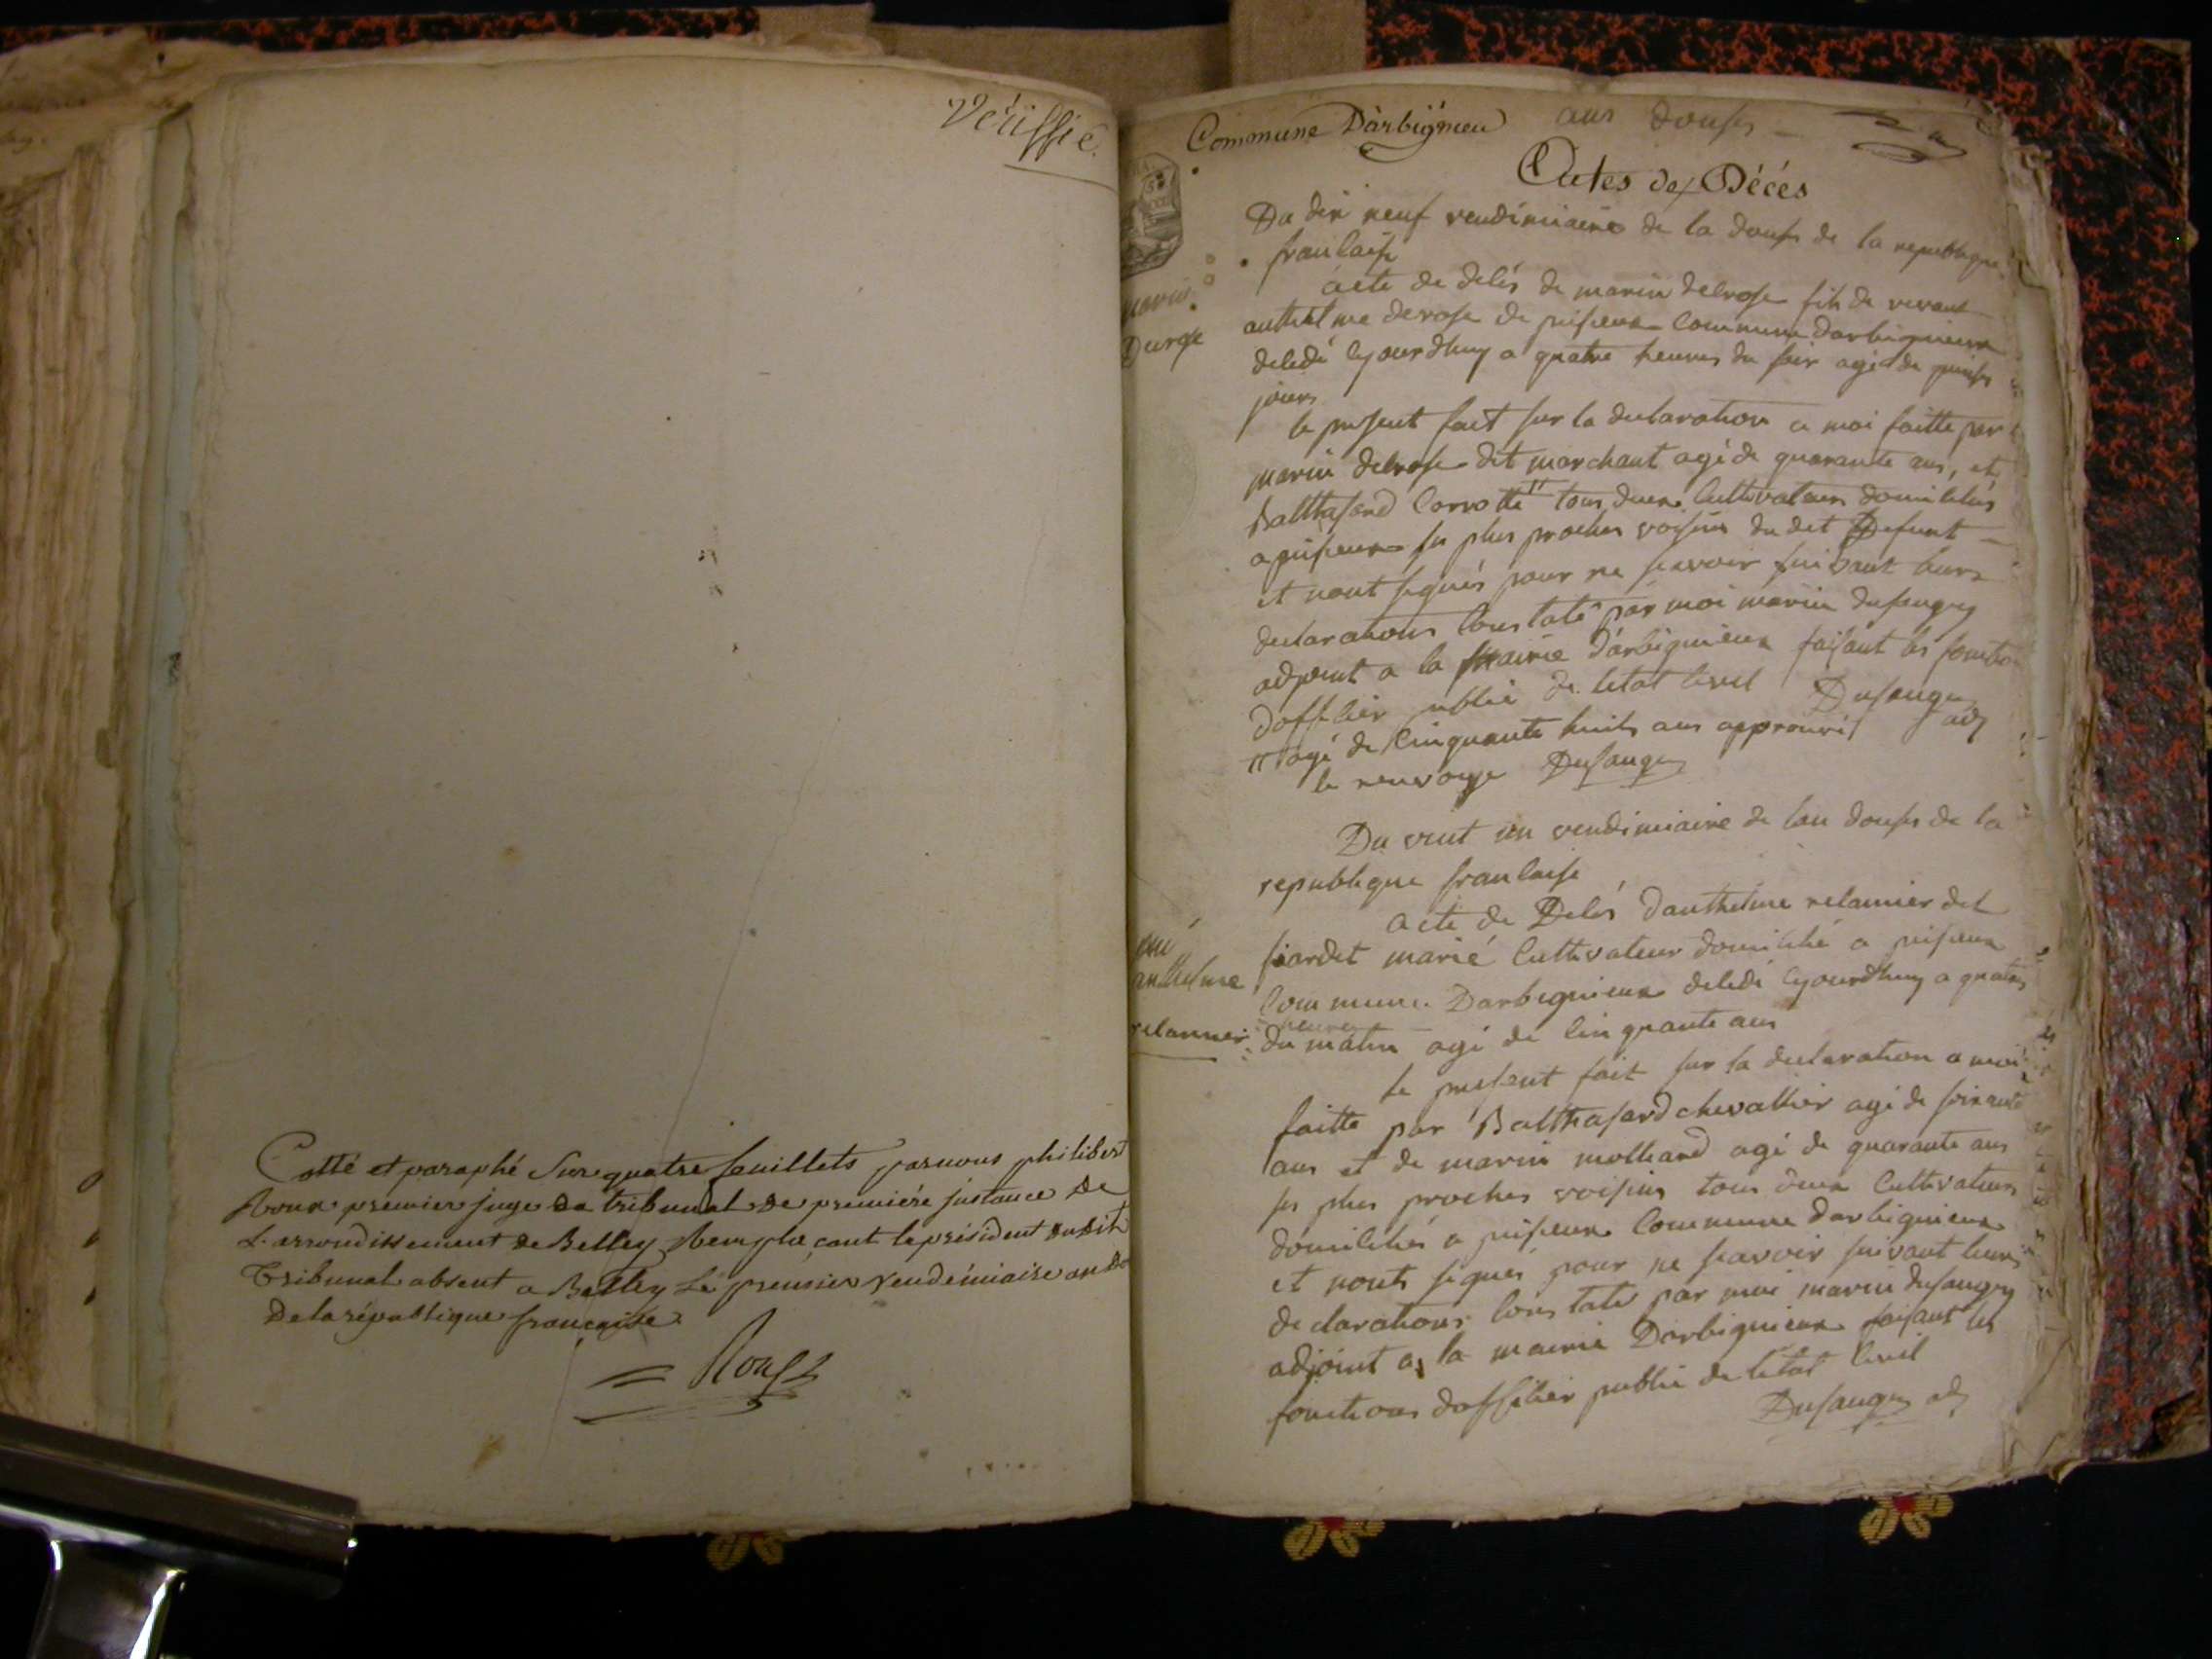 Vériffié
Cotté et paraphé Sur quatre feuillets par nous philibert
Roux premier juge du tribunal de première jnstance de
L'arrondissement de Belley Remplaçant le président dudit
Tribunal absent a Belley Le premier vendémiaire an
De la république française
Roux
Commune D'arbignieu ans douse
Actes de Décés
Du dix neuf vendimiaire de la douse de la republique
francaise
acte de delés de marin delrose fils de vivant
anthelme derose de pusieux commune darbignieux
deledé cejourdhuy a quatre heures du soir agé de quinse
jours
marin
le present fait sur la declaration a moi faitte par
marin delrose dit marchant agé de quarante ans, et
Balthasard Corrotte tous deux Cultivateurs domiliciés
a pusieux ses plus proches voisins du dit Defunt
et nont signés pour ne scavoir suivant leurs
declarations Constaté par moi marin dusaugey
adjoint a la mairie d'arbignieux faisant les
dofficier public de letat civil Dusaugey adj
agé de Cinquante huits ans approuvé
le renvoye Dusaugey
Du vint un vendimiaire de lan douse de la
republique francaise
acte de Delés danthelme relannier dit
siardet marié Cultivateur domicilié a pusieux
Commune Darbignieux deledé cejourdhuy a quatre
heures
du matin agé de Cinquante ans
anthelme
relannier
le present fait sur la declaration a moi
faitte par Balthasard chevallier agé de soixante
ans et de marin molliard agé de quarante ans
ses plus proches voisins tous deux Cultivateurs
domiciliés a pusieux Commune darbignieux
et nonts signés pour ne scavoir suivant leurs
declarations Constaté par moi marin dusaugey
adjoint a la mairie Darbignieux faisant les
fonctions dofficier public de létat Civil
Dusaugey adj